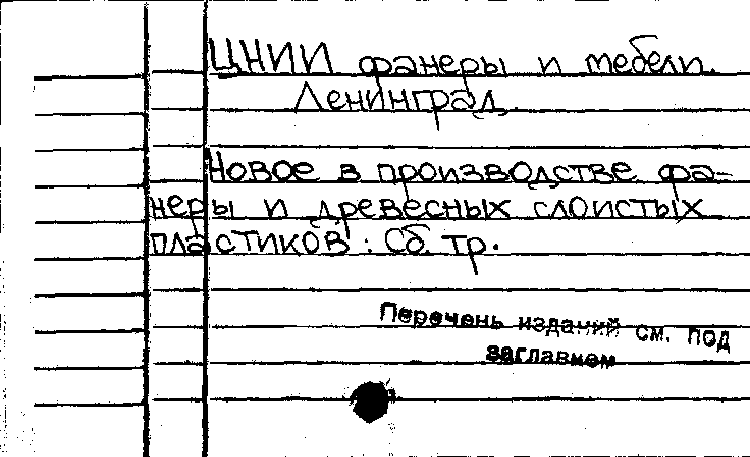 ЦНИИ фанеры и мебели.
Ленинград.
Новое в производстве фа-
неры и древесных слоистых
пластиков : Сб. тр.
Перечень изданий см. под
заглавием